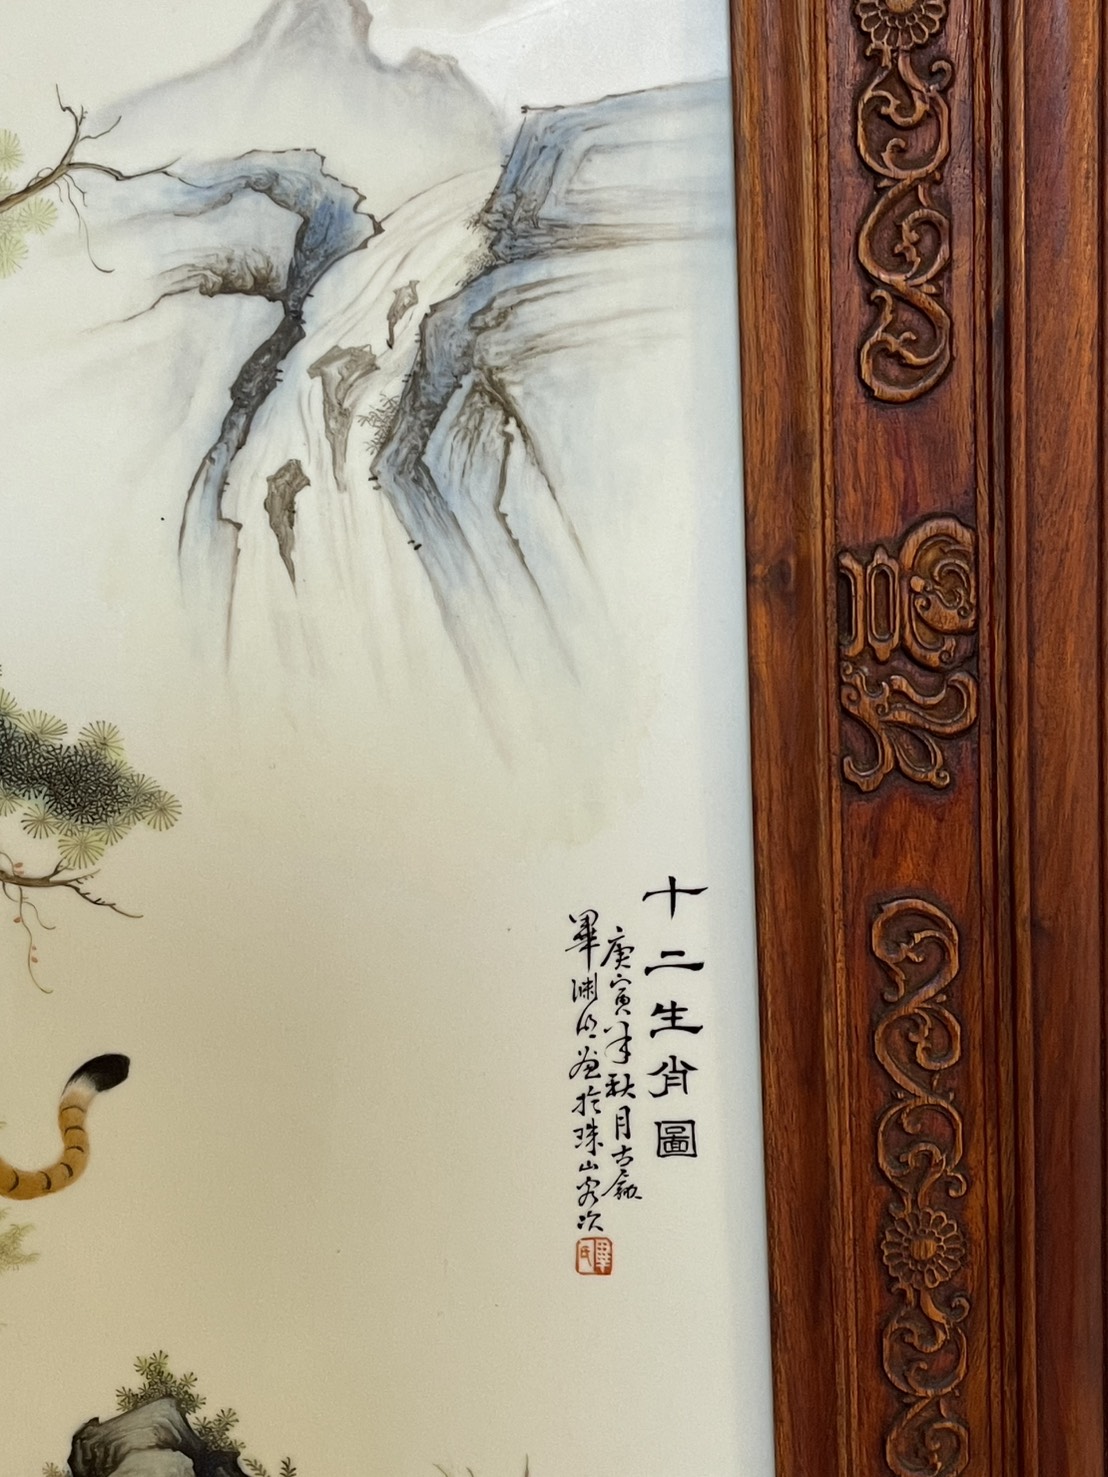 十二生肖圖
庚寅年秋月古歙
畢渊明畫於珠山客次
畢氏